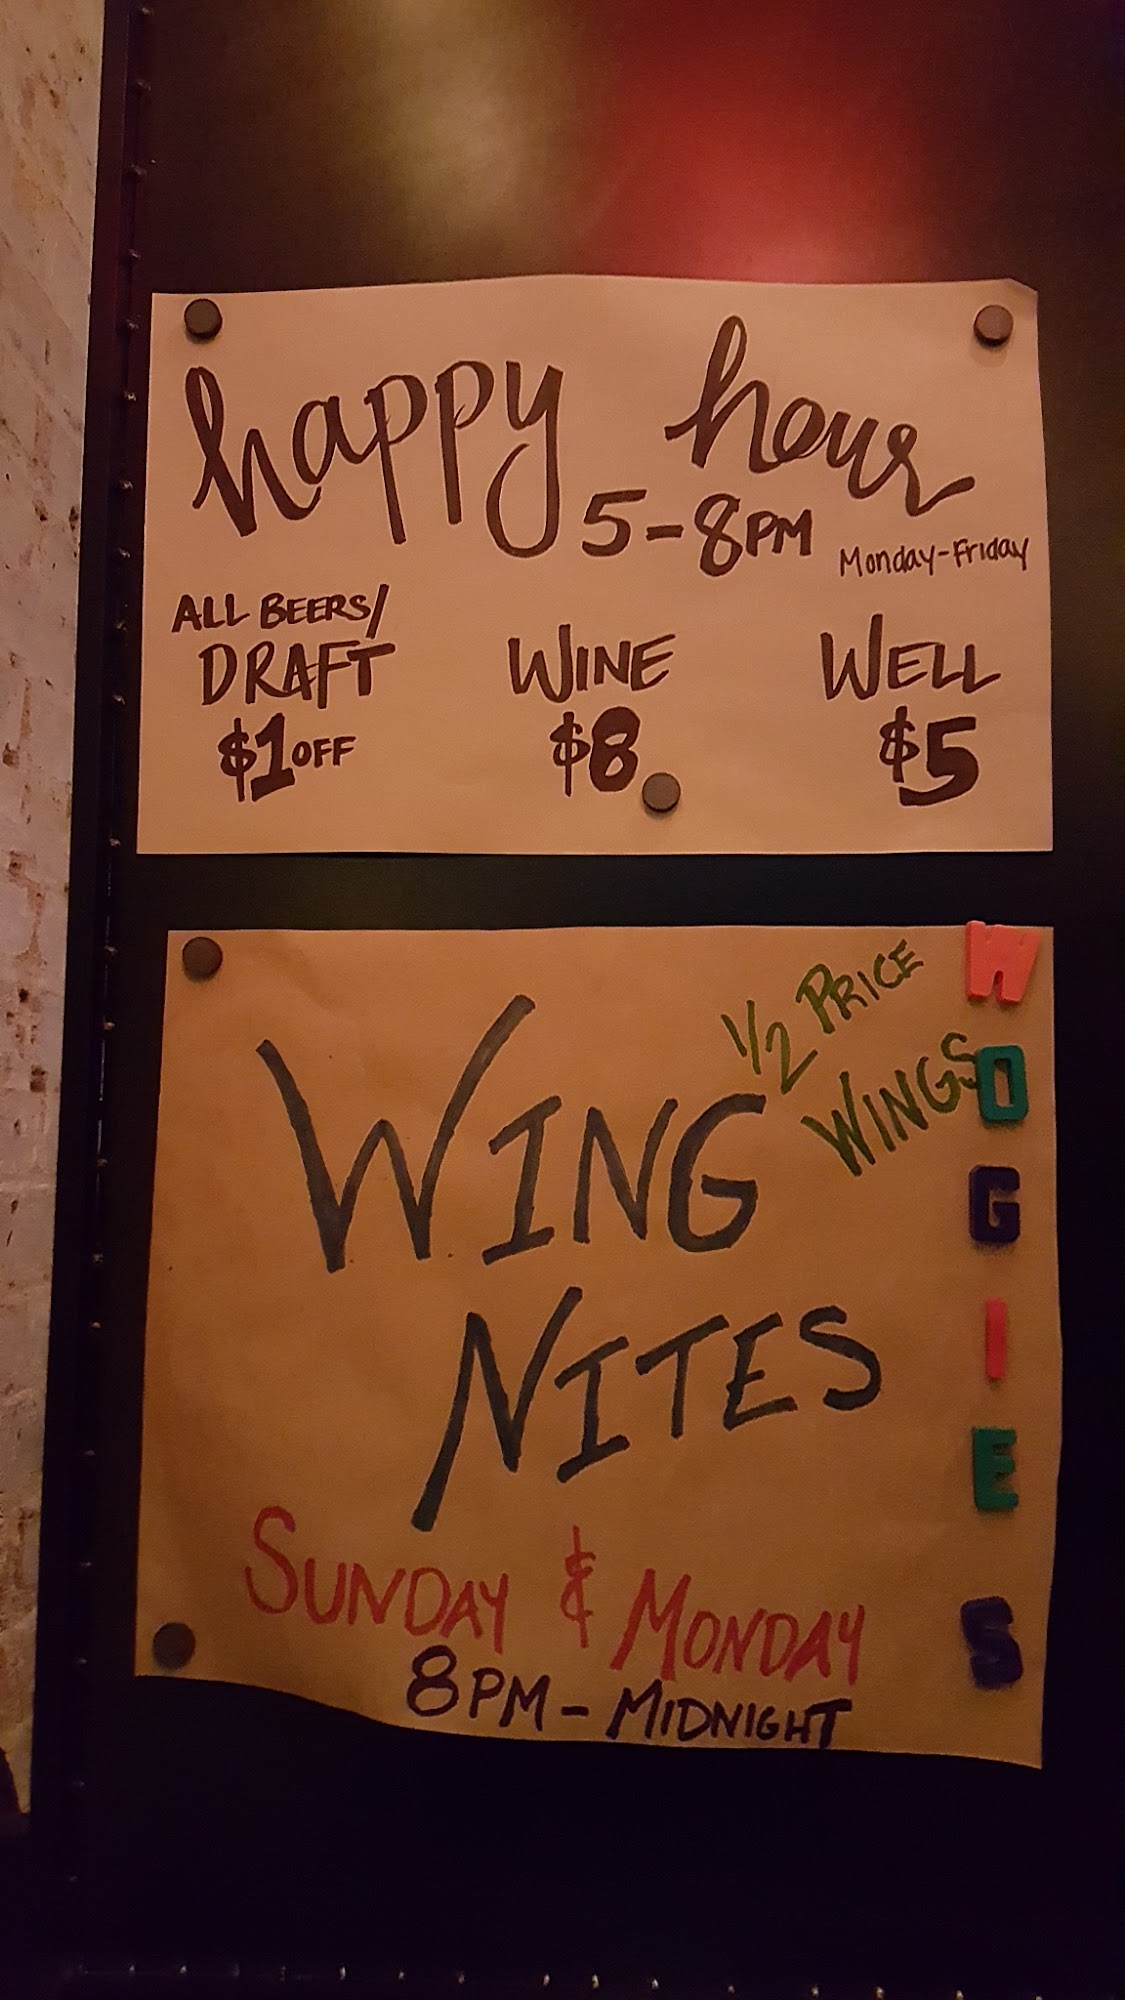 happy hour
5-8PM Monday-Friday
ALL BEERS/
DRAFT
$1 OFF
WINE
$8
WELL
$5
1/2 PRICE
WINGS
WING
NITES
SUNDAY & MONDAY
8PM - MIDNIGHT
WOGIES